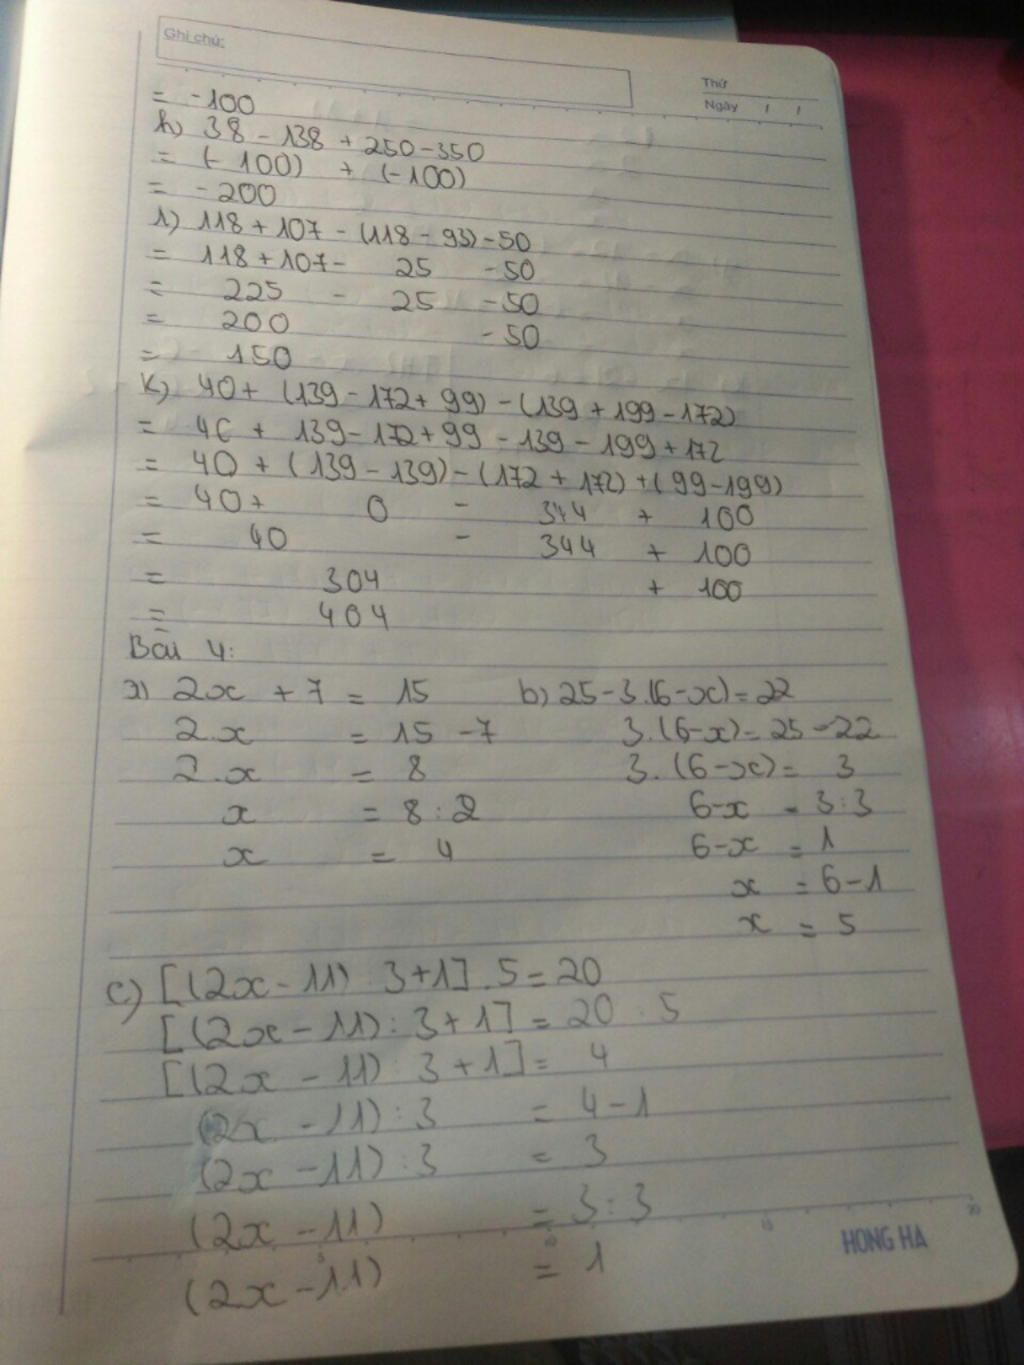 Ghi chú:
Thứ
Ngày / /
= -100
h) 38 - 138 + 250 - 350
= (-100) + (-100)
= -200
i) 118 + 107 - (118 - 93) - 50
= 118 + 107 - 25 - 50
= 225 - 25 - 50
= 200 - 50
= 150
k) 40 + (139 - 172 + 99) - (139 + 199 - 172)
= 40 + 139 - 172 + 99 - 139 - 199 + 172
= 40 + (139 - 139) - (172 + 172) + (99 - 199)
= 40 + 0 - 344 + 100
= 40 - 344 + 100
= 304 + 100
= 404
Bài 4:
a) 2x + 7 = 15
2.x = 15 - 7
2.x = 8
x = 8 : 2
x = 4
b) 25 - 3.(6 - x) = 22
3.(6 - x) = 25 - 22
3.(6 - x) = 3
6 - x = 3 : 3
6 - x = 1
x = 6 - 1
x = 5
c) [(2x - 11) : 3 + 1] . 5 = 20
[(2x - 11) : 3 + 1] = 20 : 5
[(2x - 11) : 3 + 1] = 4
(2x - 11) : 3 = 4 - 1
(2x - 11) : 3 = 3
(2x - 11) = 3 : 3
(2x - 11) = 1
5 10 15 20
HONG HA